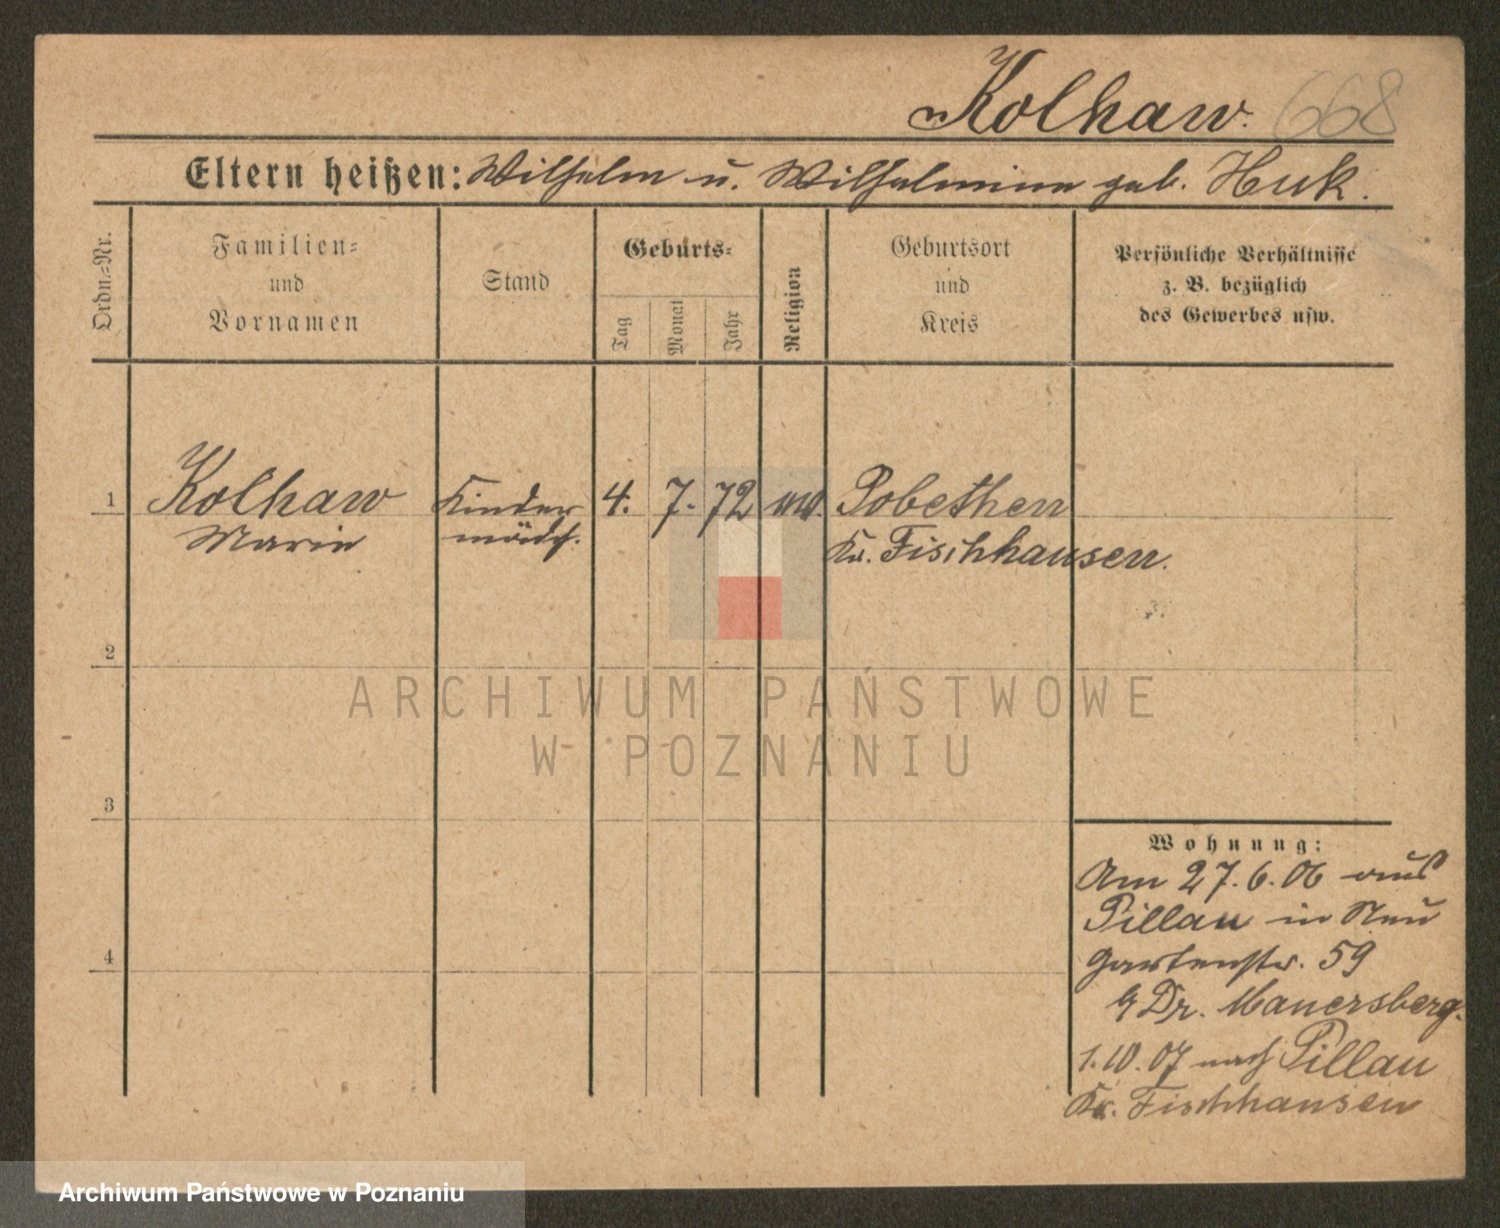 Kolhaw. 668
Eltern heißen: Wilhelm u. Wilhelmine geb. Huk.
Ordn.-Nr.
Familien-
und
Vornamen
Stand
Geburts-
Tag
Monat
Jahr
Religion
Geburtsort
und
Kreis
Persönliche Verhältnisse
z. B. bezüglich
des Gewerbes usw.
1 Kolhaw Kinder 4. 7. 72 Pobethen
Marie mädch. Kr. Fischhausen.
2
ARCHIWUM PAŃSTWOWE
W POZNANIU
3
Wohnung:
Am 27.6.06 aus
Pillau in Neu
4
Gartenstr. 59
b Dr. Mauersberg.
1.10.07 nach Pillau
Kr. Fischhausen
Archiwum Państwowe w Poznaniu